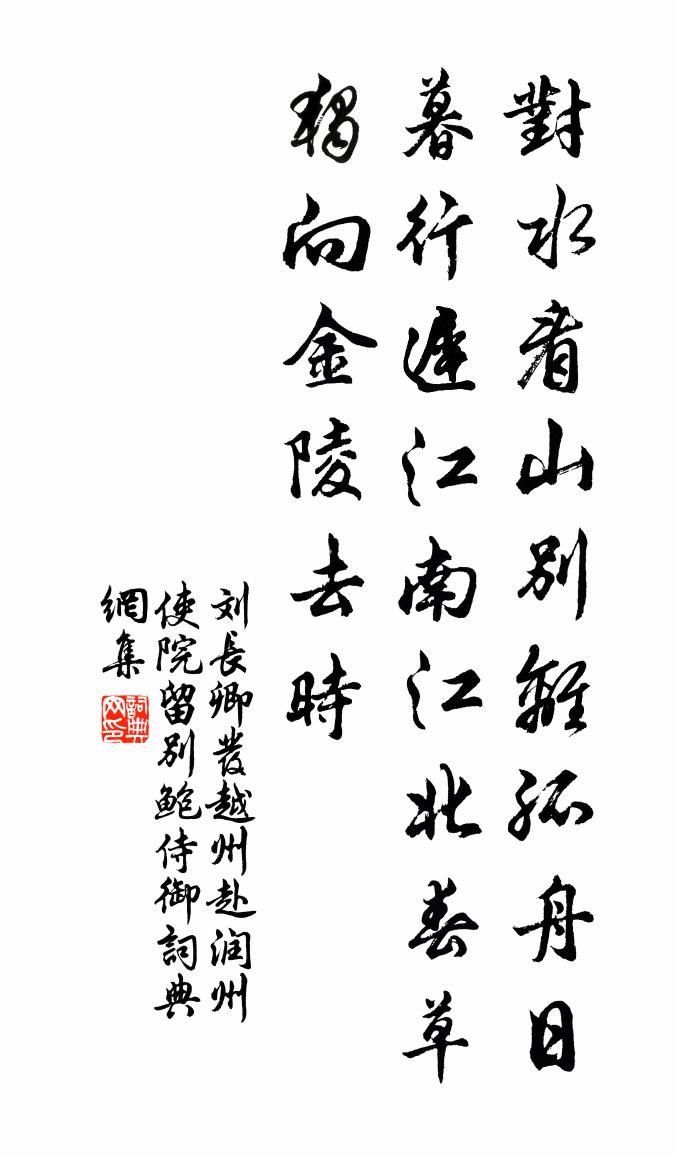 對水看山別離孤舟日
暮行遲江南江北春草
獨向金陵去時
刘長卿發越州赴润州
使院留别鲍侍御詞典
網集
詞典
网印